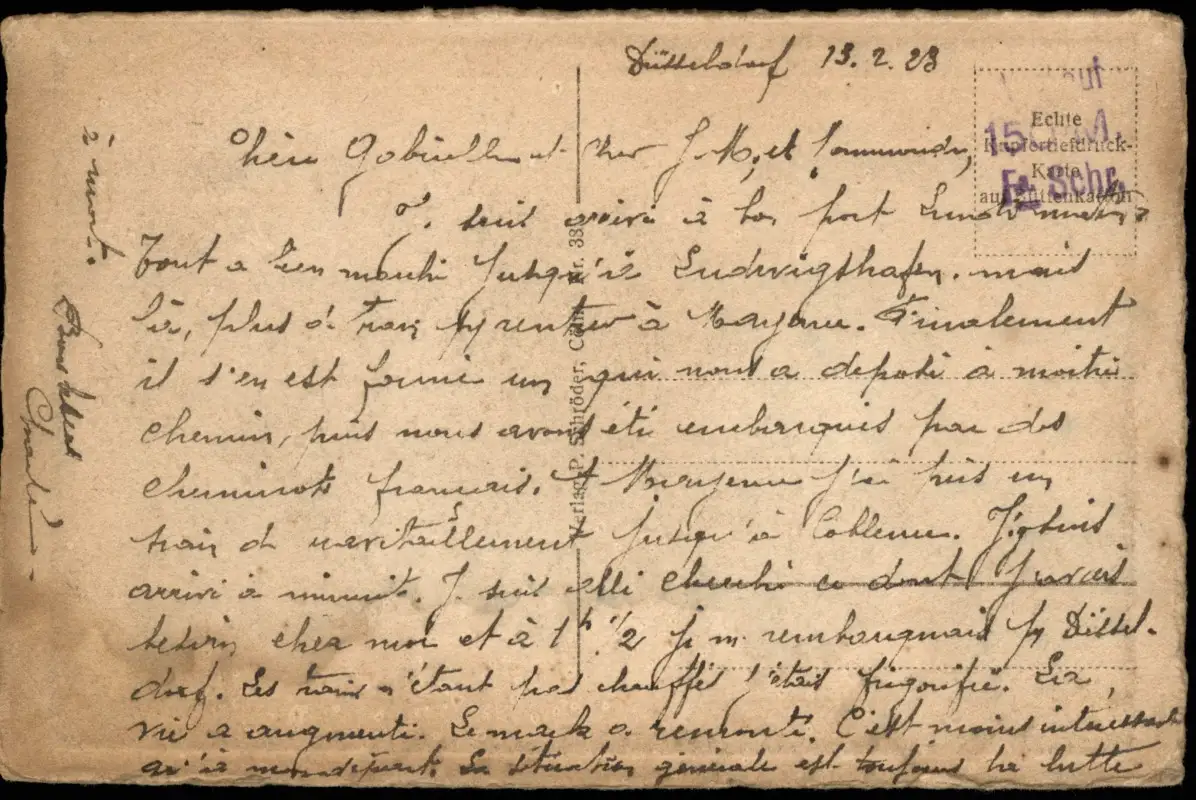 Düsseldorf 13.2.23
Chère Gabrielle et cher J. M, et
Je suis arrivé à bon port Lundi matin
Tout a bien marché jusqu'à Ludwigshafen. mais
là, plus de train pr rentrer à Mayence. Finalement
il s'en est formé un qui nous a déposé à moitié
chemin, puis nous avons été embarqués par des
cheminots français. A Mayence j'ai pris un
train de ravitaillement jusqu'à Coblence. J'y suis
arrivé à minuit. Je suis allé cherché ce dont j'avais
besoin chez moi et à 1h 1/2 je me rembarquais pr Düssel-
dorf. Les trains n'étant pas chauffés j'étais frigorifié. La
vie a augmenté. Le mark a remonté. C'est moins intéressant
qu'à mon départ. La situation générale est toujours la lutte
à mort.
Bons baisers
Charles
Verlag P. Schröder, Cöln Nr. 33
Echte
Kupfertiefdruck-
Karte
auf Büttenkarton
15 M.
Fa Schr.